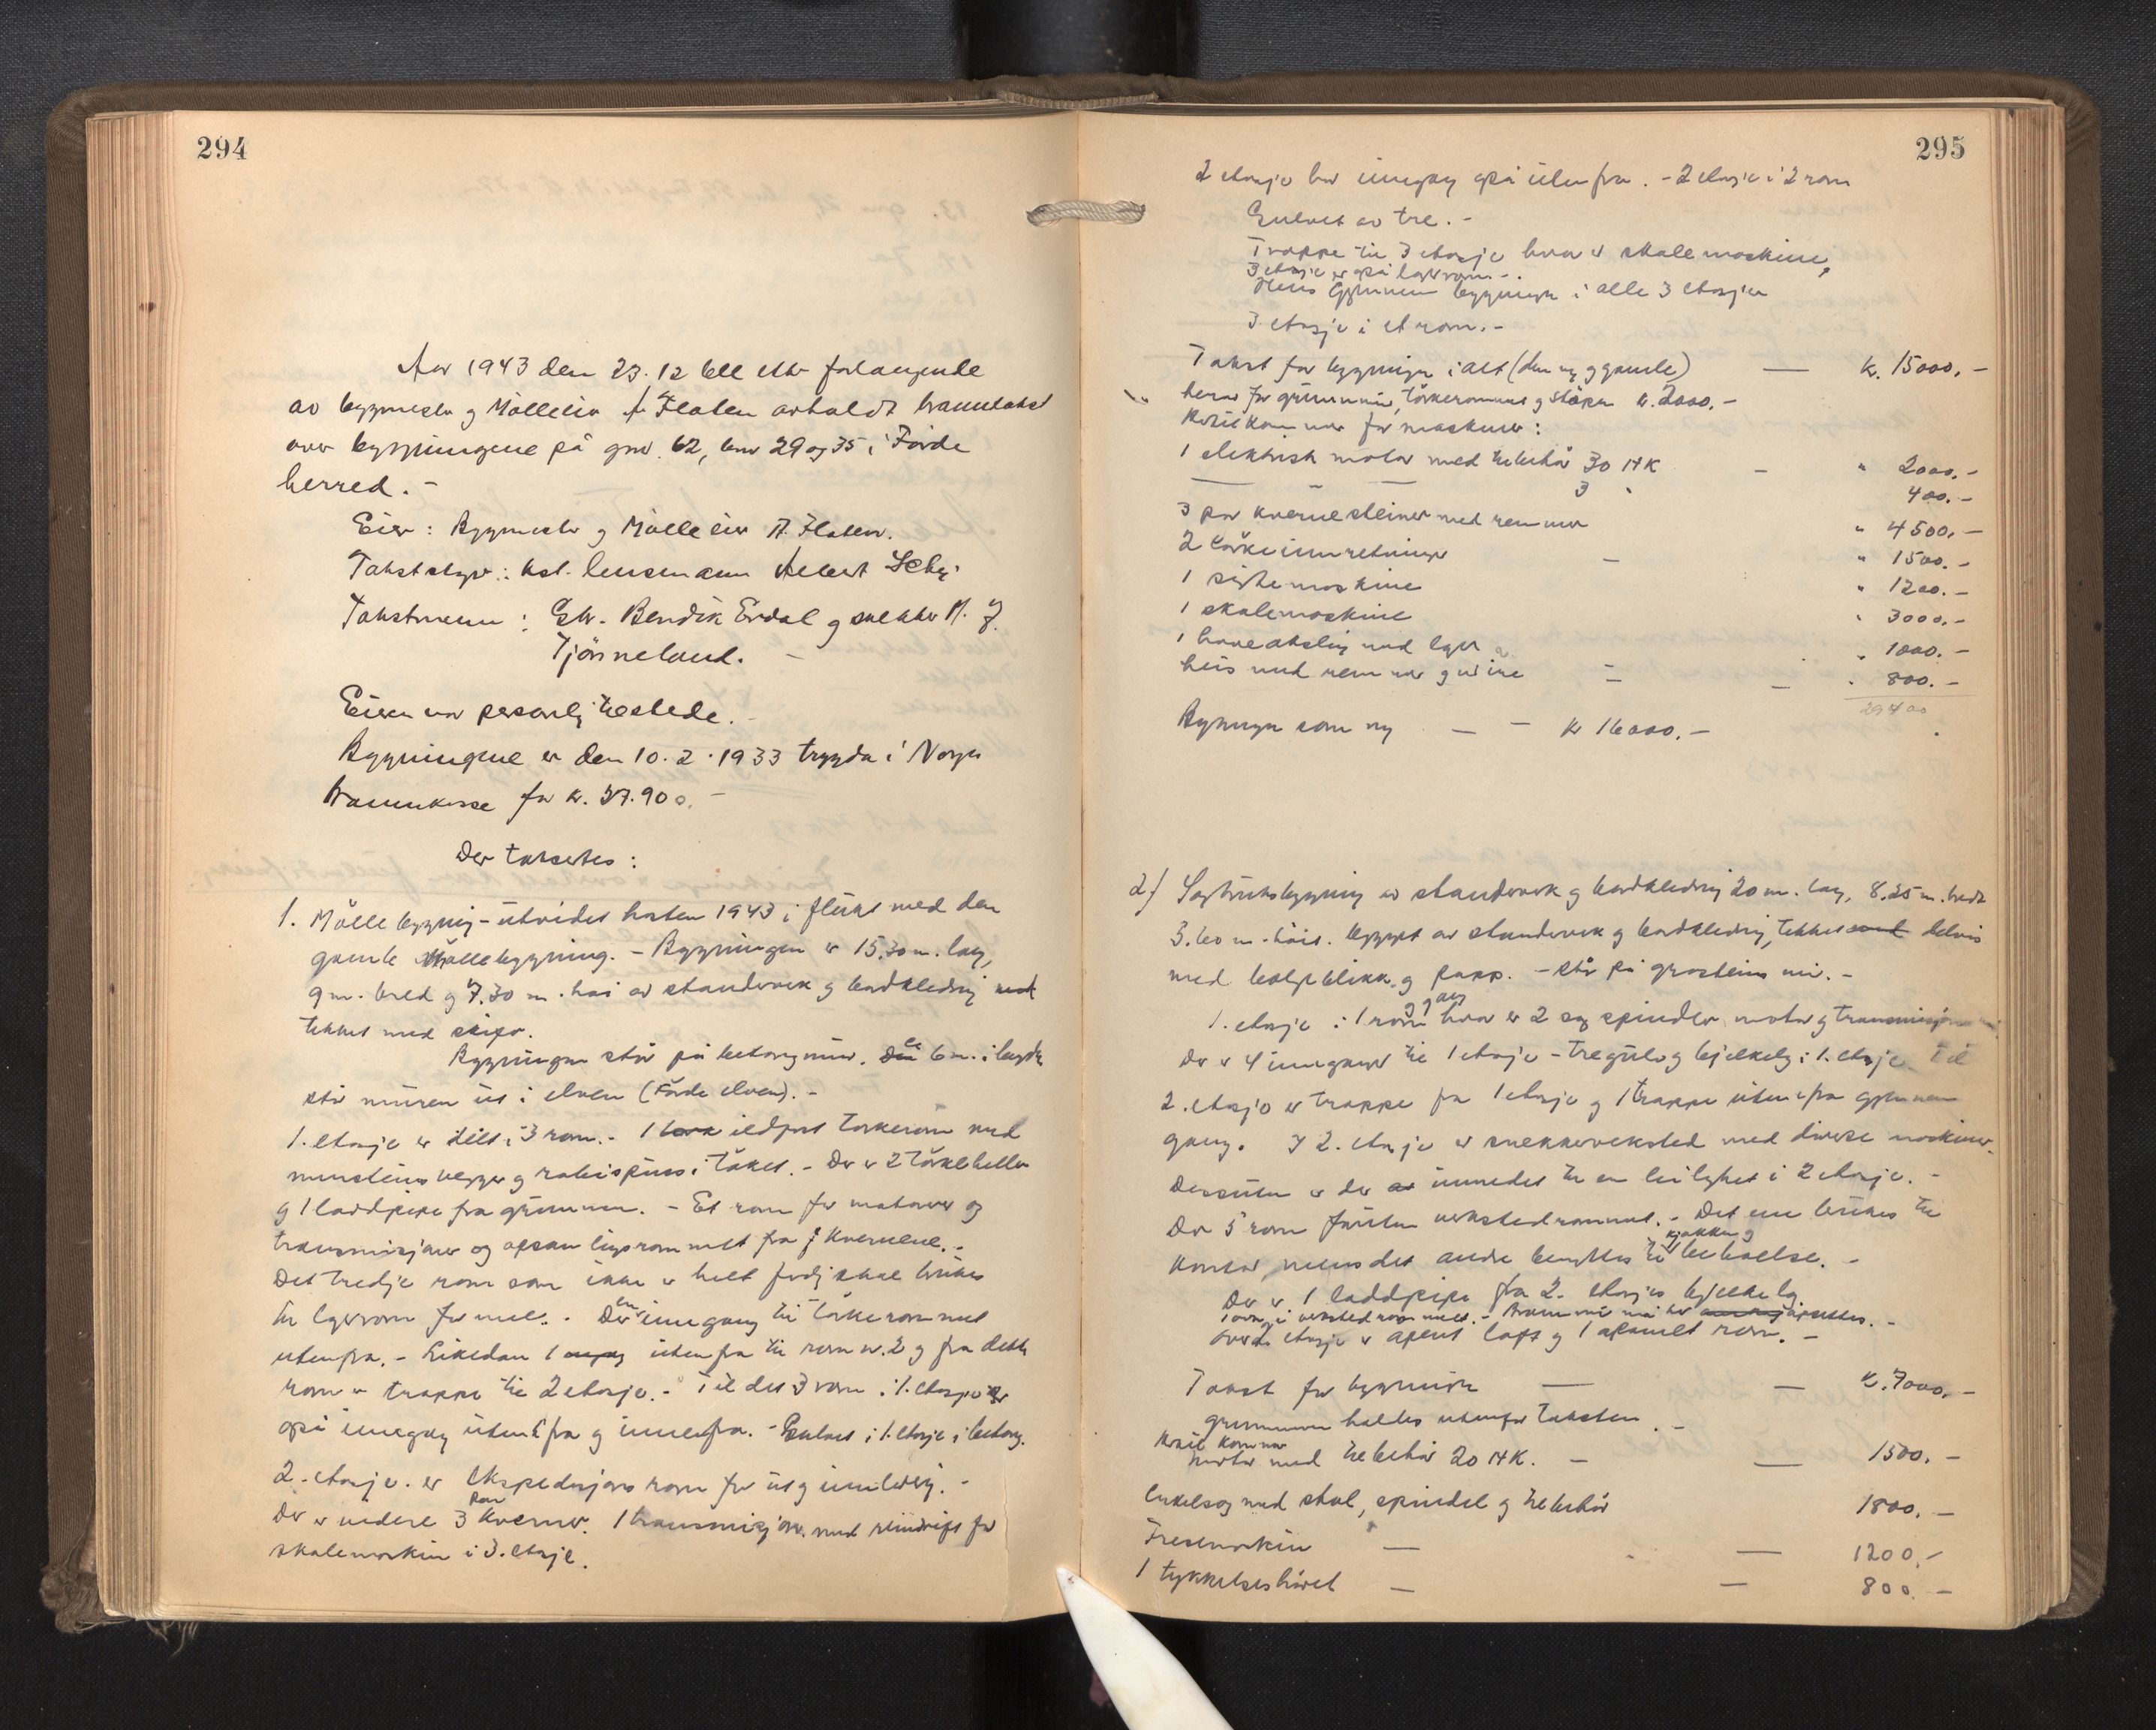 294
Aar 1943 den 23.12 ble etter forlangende
av byggmester og Mölleeier A Flaten avholdt branntakst
over bygningene på gnr. 62, bnr 29 og 35 i Förde
herred. -
Eier: Byggmester og Mölleeier A. Flaten.
Takststyrer: kst. lensmann Albert
Takstmenn: Gbr. Bendik Erdal og snekker A. J.
Tjönneland. -
Eieren var personlig tilstede. -
Bygningene er den 10.2.1933 trygda i Norges
Brannkasse for kr. 37.900. -
Der takseres:
1. Mölle bygning - utvidet hösten 1943 i flukt med den
gamle Möllebygning. - Bygningen er 15,30 m. lang,
9 m. bred og 7,30 m. höi av standverk og bordkledning med
tekket med skifer.
Bygningen står på betongmur. 6 m. i lengde
står muren ut i elven (Förde elven). -
1. etasje er delt i 3 rom. - 1 ildfast törkerom med
murstens vegger og rabitspuss i taket. - Der er 2 törkeheller
og 1 laddpipe fra grunnen. - Et rom for motorer og
transmisjoner og opsamlingsrommet fra kvernene. -
Det tredje rom som ikke er helt ferdig skal brukes
til lagerrom for mel. - Der er inngang til törkerommet
utenfra. - Likedan 1 utenfra til rom nr. 2 og fra dette
rom er trappe til 2 etasje. - Til det 3 rom i 1. etasje er
også inngang utenfra og innenfra. - Gulvet i 1. etasje i betong.
2. etasje. er Ekspedisjons rom for ut og innlevering. -
Der er videre 3 par kverner. 1 transmisjon. med reimdrift for
skalemaskin i 3. etasje.
295
2 etasje har inngang også utenfra. - 2 etasje i 2 rom
Gulvet av tre. -
Trappe til 3 etasje hvor er skalemaskine,
3 etasje er også lagerrom -.
Heis gjennem bygningen i alle 3 etasjer
3. etasje i et rom. -
Takst for bygningen i alt (den ny og gamle) — kr. 15000. -
herav for grunnmur, törkerommet og stöpen kr. 2000. -
Hertil kommer for maskiner:
1 elektrisk motor med tilbehör 30 HK - " 2000. -
— — 3 " 400. -
3 par kvernesteiner med remmer " 4500. -
2 törkeinnretninger - " 1500. -
1 siktemaskine " 1200. -
1 skalemaskine " 3000. -
1 hoveaksling med lager " 1000. -
heis med remmer og wire - - " 800. -
29400
Bygningen som ny — - kr 16000. -
2) Sagbruksbygning av standverk og bordkledning 20 m. lang, 8.25 m. bredt
3.60 m. höi. bygget av standverk og bordkledning, tekket med delvis
med bölgeblikk og papp. - står på gråsteins mur. -
1. etasje i 1 rom og gang hvor er 2 sag spindler motor og transmisjon
Der er 4 innganger til 1 etasje - tregulv og bjelkelag i 1. etasje. Til
2. etasje er trappe fra 1 etasje og 1 trappe utenfra gjennem
gang. I 2. etasje er snekkerverksted med diverse maskiner.
Dessuten er der innredet til en leilighet i 2 etasje. -
Der 5 rom foruten verkstedrommet. - Det ene brukes til
kontor, mens det andre benyttes til kjökken og beboelse. -
Der er 1 laddpipe fra 2. etasjes bjelkelag
1 ovn i verkstedrommet. - Brannmur må her opsettes. -
Over 2. etasje er åpent loft og 1 rom. -
Takst for bygningen — — kr. 7000. -
grunnmuren holdes utenfor taksten. -
Hertil kommer
motor med tilbehör 20 HK. - — 1500. -
Enkelsag med stol, spindel og tilbehör 1800. -
Fresemaskin — — 1200. -
1 tykkelseshövel — — 800. -